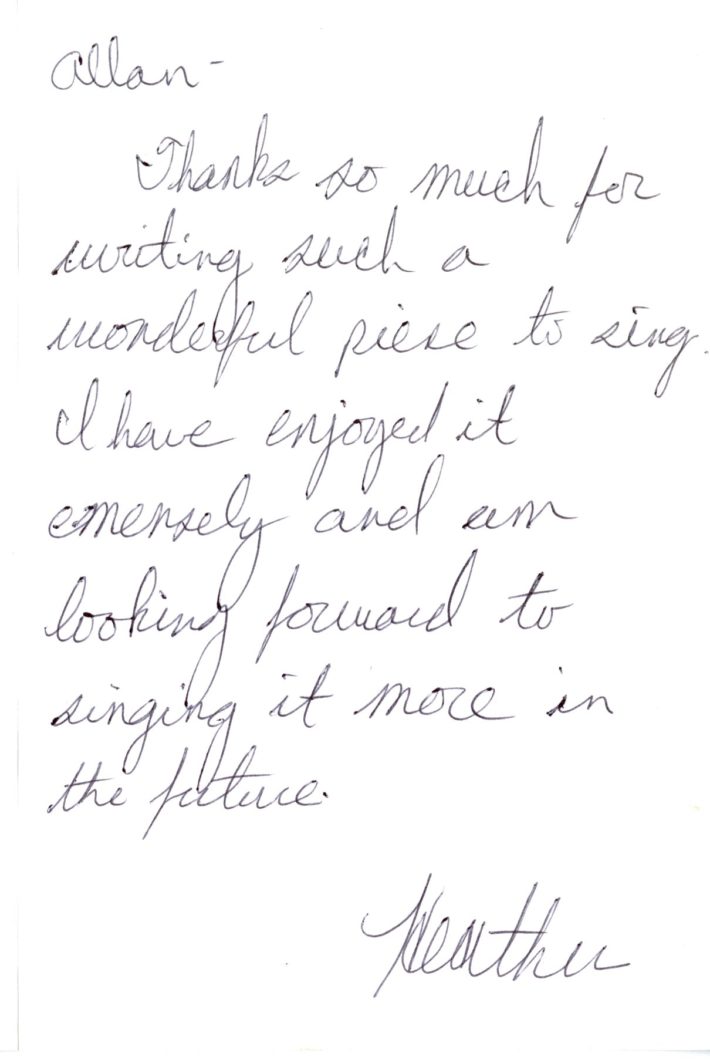 Allan-
Thanks so much for
writing such a
wonderful piese to sing.
I have enjoyed it
emensely and am
looking forward to
singing it more in
the future.
Heather